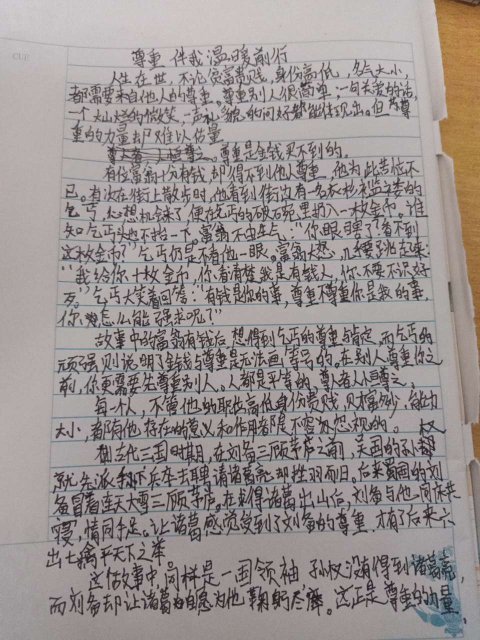 尊重 伴我温暖前行
人生在世,不论贫富贵贱,身份高低,名气大小,
都需要来自他人的尊重。尊重别人很简单,一句关爱的话,
一个灿烂的微笑,一声礼貌的问好都能体现出。但尊
重的力量却难以估量。
尊重是金钱买不到的。
有位富翁十分有钱,却得不到他人尊重,他为此苦恼不
已。有次在街上散步时,他看到街边有一名衣衫褴褛的
乞丐,心想机会来了,便在乞丐的破碗里扔入一枚金币。谁
知乞丐头也不抬一下,富翁不由生气:“你眼瞎了?看不到
这枚金币?”乞丐仍是不看他一眼。富翁大怒,几乎要跳起来:
“我给你十枚金币,你看看清楚我是有钱人,你不要不识好
歹。”乞丐大笑着回答:“有钱是你的事,尊重不尊重你是我的事,
你怎么能强求呢?”
故事中的富翁有钱后想得到乞丐的尊重与肯定,而乞丐的
顽强则说明了金钱与尊重是无法画等号的。在别人尊重你之
前,你更需要先尊重别人。人都是平等的,尊人者人恒尊之。
每个人,不管他的职业高低,身份贵贱,贝才富多少,能力
大小,都有他存在的意义和作用都是不容忽视的。
古代三国时期,在刘备三顾茅庐之前,吴国的孙权
就派手下兵卒去聘请诸葛亮,却铩羽而归。后来蜀国的刘
备冒着连天大雪三顾茅庐。在求得诸葛出山后,刘备与他同床共
寝,情同手足。让诸葛感觉受到了刘备的尊重,才有了后来六
出七擒平天下之举
这故事中,同样是一国领袖,孙权没有得到诸葛亮,
而刘备却让诸葛自愿为他鞠躬尽瘁。这正是尊重的力量,